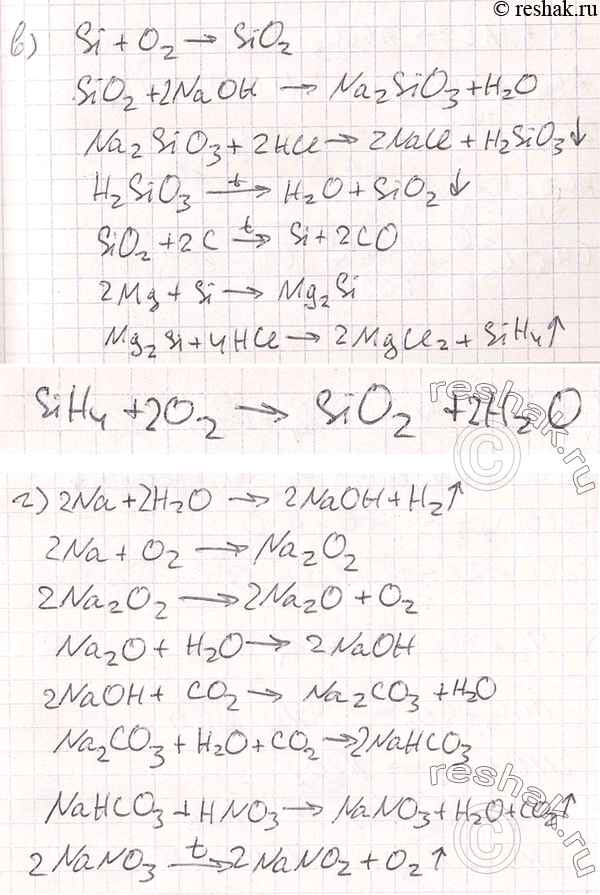 © reshak.ru
в) Si + O₂ → SiO₂
SiO₂ + 2NaOH → Na₂SiO₃ + H₂O
Na₂SiO₃ + 2HCl → 2NaCl + H₂SiO₃↓
H₂SiO₃ →ᵗ H₂O + SiO₂↓
SiO₂ + 2C →ᵗ Si + 2CO
2Mg + Si → Mg₂Si
Mg₂Si + 4HCl → 2MgCl₂ + SiH₄↑
SiH₄ + 2O₂ → SiO₂ + 2H₂O
reshak.ru ©
г) 2Na + 2H₂O → 2NaOH + H₂↑
2Na + O₂ → Na₂O₂
2Na₂O₂ → 2Na₂O + O₂
Na₂O + H₂O → 2NaOH
2NaOH + CO₂ → Na₂CO₃ + H₂O
Na₂CO₃ + H₂O + CO₂ → 2NaHCO₃
NaHCO₃ + HNO₃ → NaNO₃ + H₂O + CO₂↑
2NaNO₃ →ᵗ 2NaNO₂ + O₂↑
reshak.ru ©